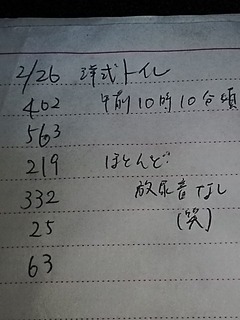 2/26 洋式トイレ
402 午前10時10分頃
563
219 ほとんど
332 放尿音なし
25 (笑)
63